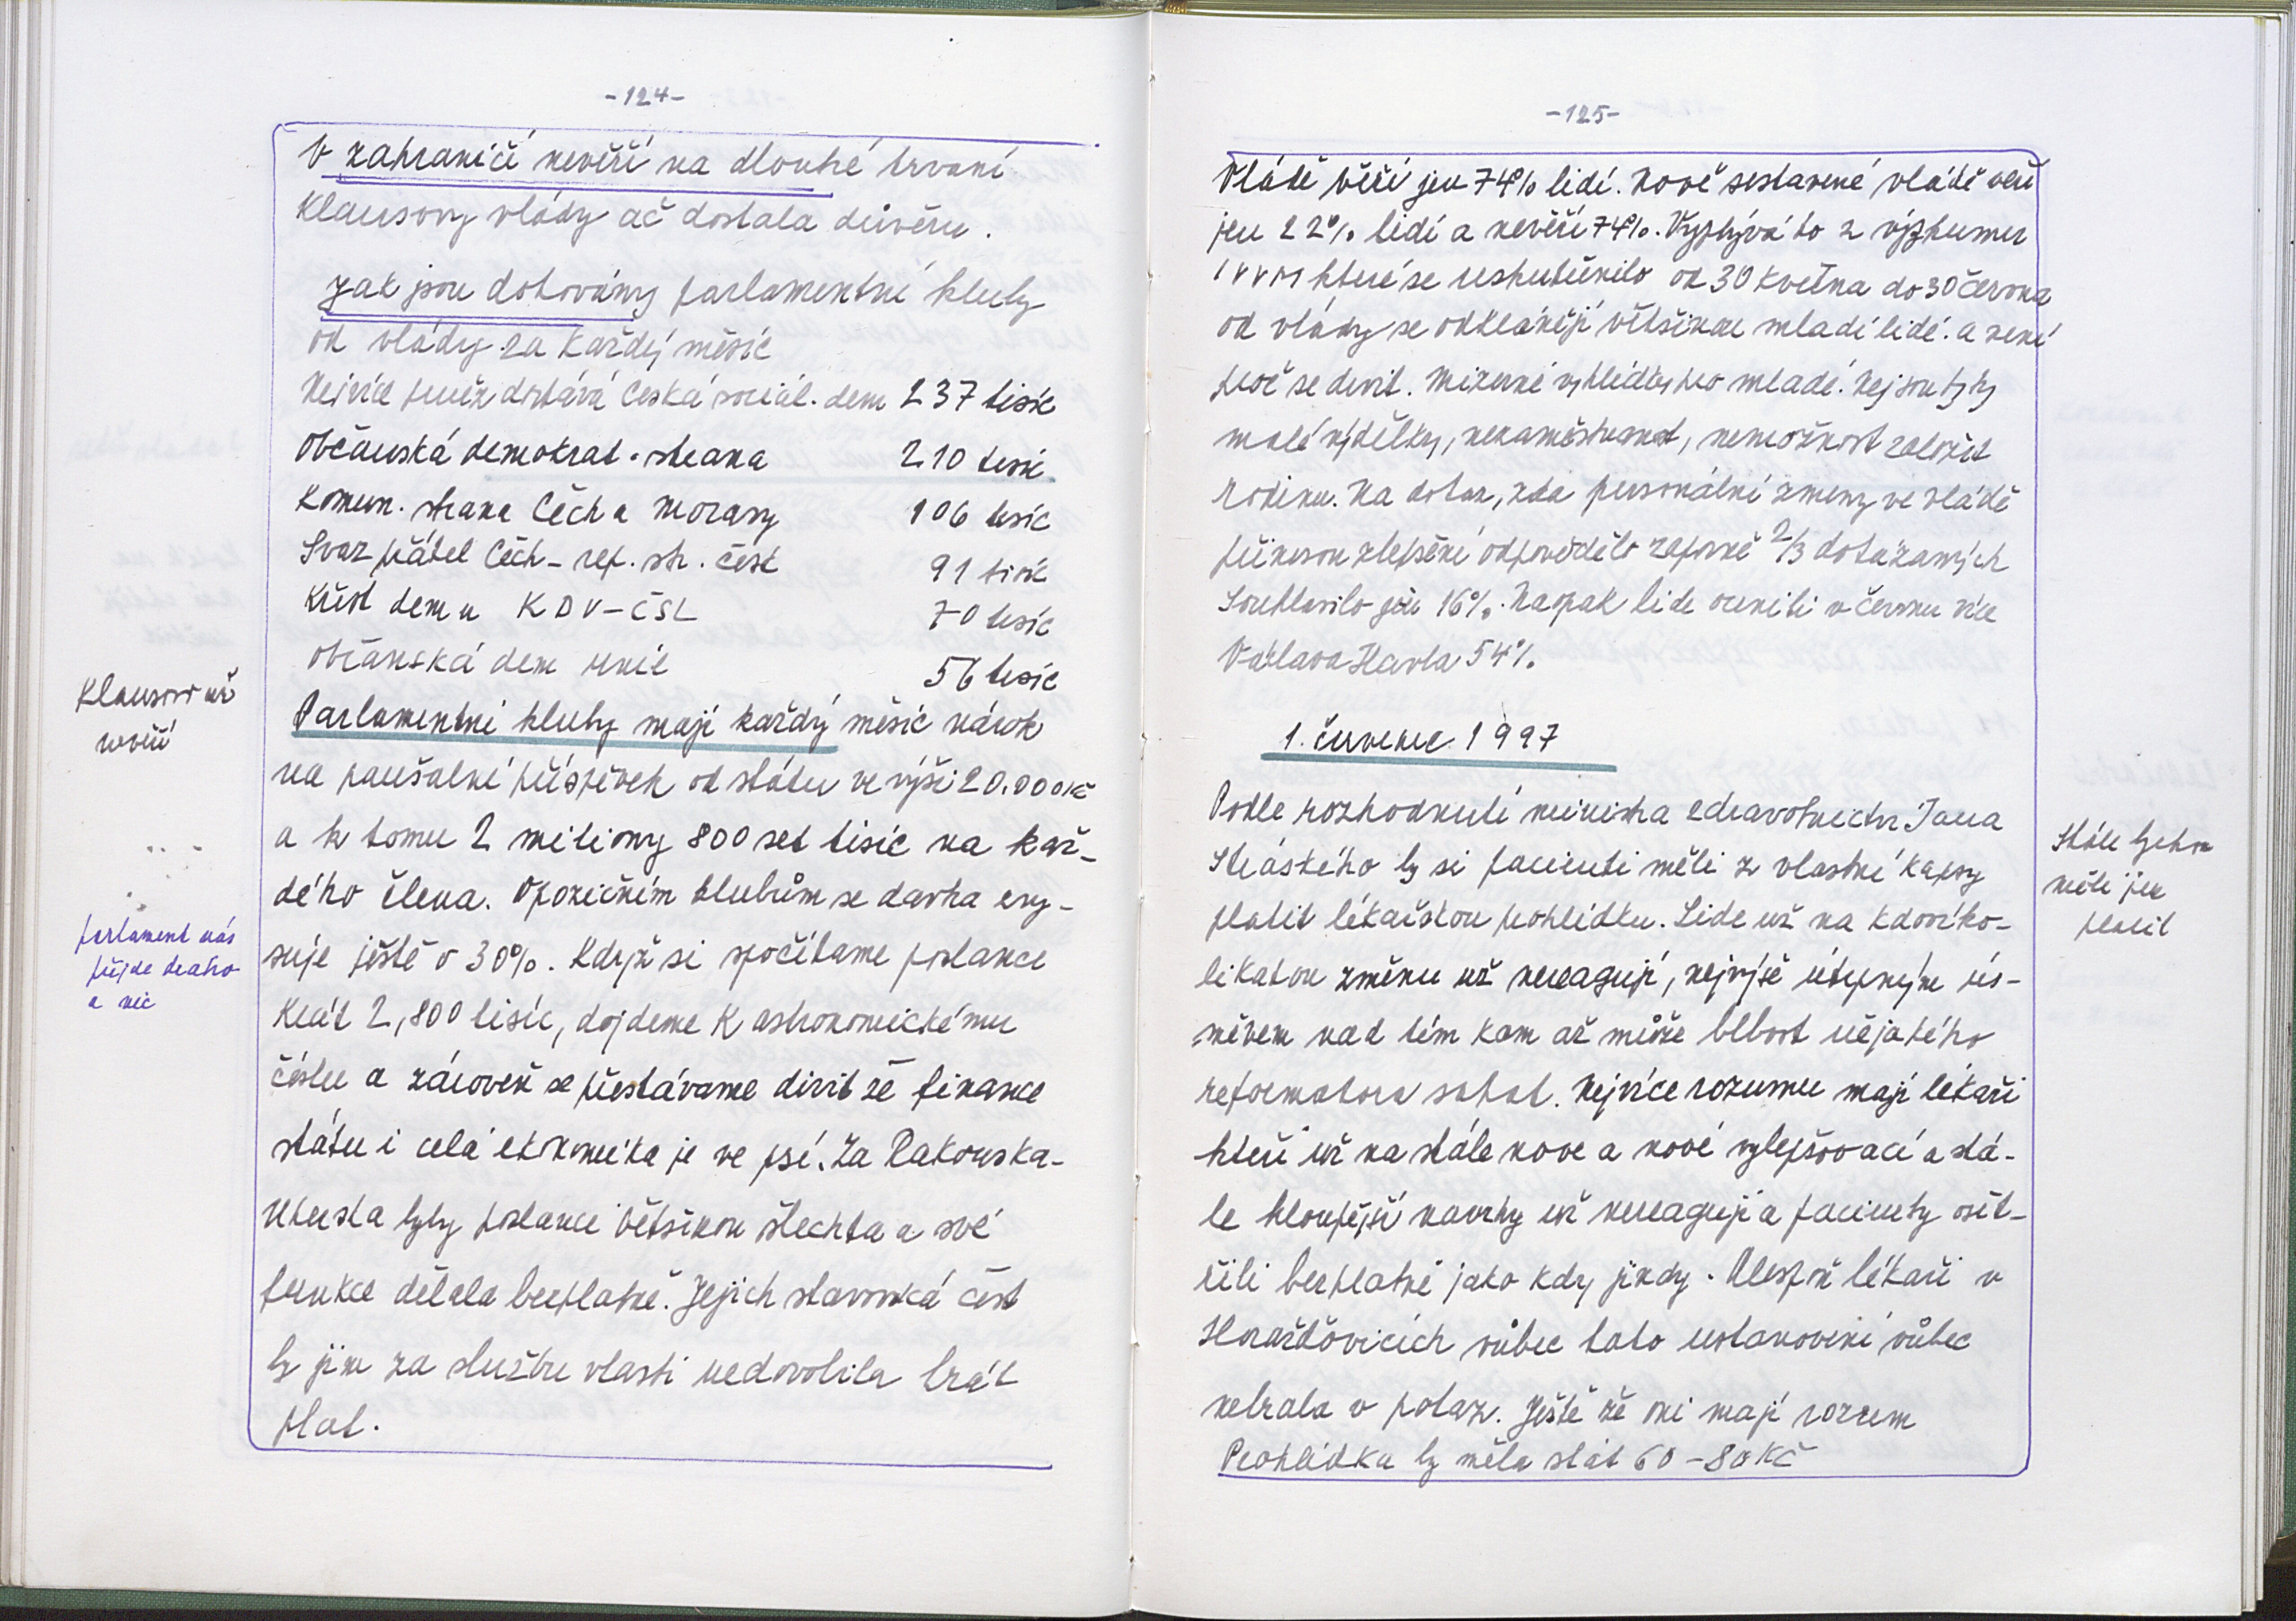 -124-
V zahraničí nevěří na dlouhé trvaní
Klausovy vlády ač dostala důvěru.
Jak jsou dotovány parlamentní kluby
od vlády za každý měsíc
Nejvíce peněz dostává Česká sociál. dem 237 tisíc
Občanská demokrat. strana 210 tisíc
Komun. strana Čech a Moravy 106 tisíc
Svaz přátel Čech - rep. str. česk 91 tisíc
Křest dem u KDV-ČSL 70 tisíc
Občanská dem unie 56 tisíc
Parlamentní kluby mají každý měsíc nárok
na paušalní příspěvek od státu ve výši 20.000Kč
a k tomu 2 miliony 800 set tisíc na kaž-
dého člena. Opozičním klubům se davka zvy-
šuje ještě o 30%. Když si spočítame poslance
Krát 2,800 tisíc, dojdeme K astronomickému
číslu a zároveň se přestávame divit že finance
státu i celá ekonomika je ve psí. Za Rakouska-
Uherska byly poslanci většinou šlechta a své
funkce dělala bezplatně. Jejich stavovská čest
by jim za službu vlasti nedovolila brát
plat.
Klausovi už
nevěří
parlament nás
přijde draho
a nic
-125-
Vládě věří jen 74% lidí. Nově sestavené vládě věří
jen 22% lidí a nevěří 74%. Vyplývá to z výzkumu
IVVM které se uskutečnilo od 30 května do 30 června
od vlády se odklánějí většinou mladí lidé. a není
proč se divit. Mizerné vyhlídky pro mladé. Nejsou byty
malé výdělky, nezaměstnanost, nemožnost založit
rodinu. Na dotaz, zda personální změny ve vládě
přinesou zlepšení odpovědělo zaporně 2/3 dotázaných
Souhlasilo jen 16%. Naopak lide ocenili v červnu více
Václava Havla 54%.
1. červenec 1997
Podle rozhodnutí ministra zdravotnictví Jana
Stráského by si pacienti měli z vlastní kapsy
platit lékařskou prohlídku. Lide už na kdovíko-
likatou změnu už nereagují, nejvýše útrpným ús-
měvem nad tím kam až může blbost nějakého
reformatora sahat. Nejvíce rozumu mají lékaři
kteří už na stále nove a nové vylepšovací a stá-
le hloupější navrhy už nereagují a pacienty ošet-
řili bezplatně jako kdy jindy. Alespoň lékaři v
Horažďovicích vůbec tato ustanovení vůbec
nebrala v potaz. Ještě že oni mají rozum
Prohlídka by měla stát 60-80Kč
Stále bychom
měli jen
platit